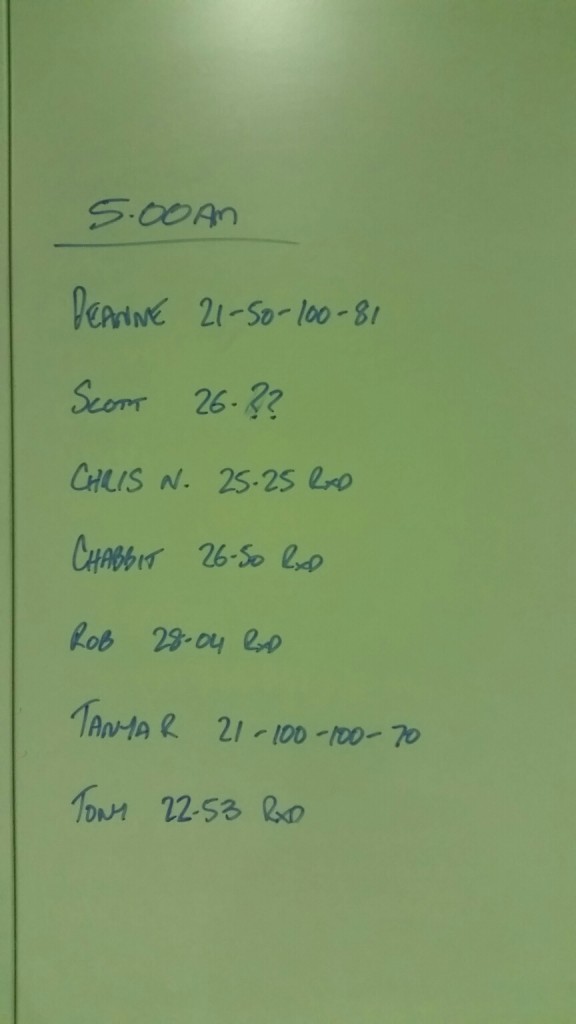 5.00AM
DEANNE 21-50-100-81
SCOTT 26.??
CHRIS N. 25.25 RXD
CHABBIT 26.50 RXD
ROB 28.04 RXD
TANYA R 21-100-100-70
TONY 22.53 RXD